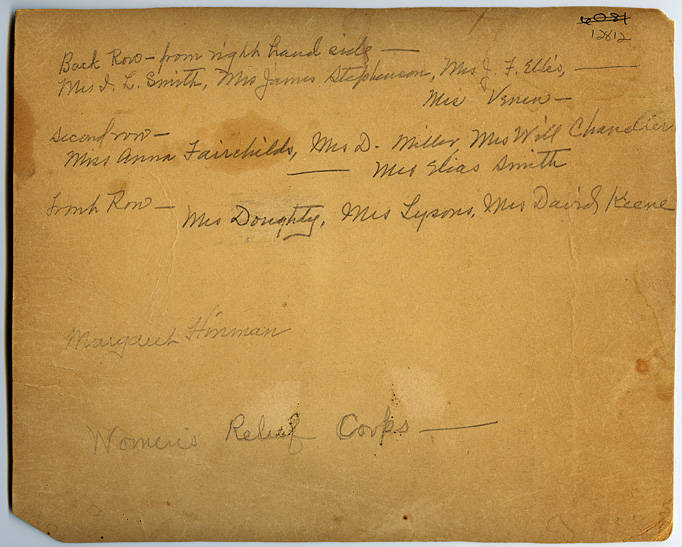 12812
Back Row - from right hand side —
Mrs I. L. Smith, Mrs James Stephenson, Mrs J. F. Ellis, —
Mrs Venen —
Second row —
Miss Anna Fairchilds, Mrs D. Miller, Mrs Will Chandler
— Mrs Elias Smith
Front Row —
Mrs Doughty, Mrs Lysons, Mrs David Keene
Margaret Hinman
Women's Relief Corps —